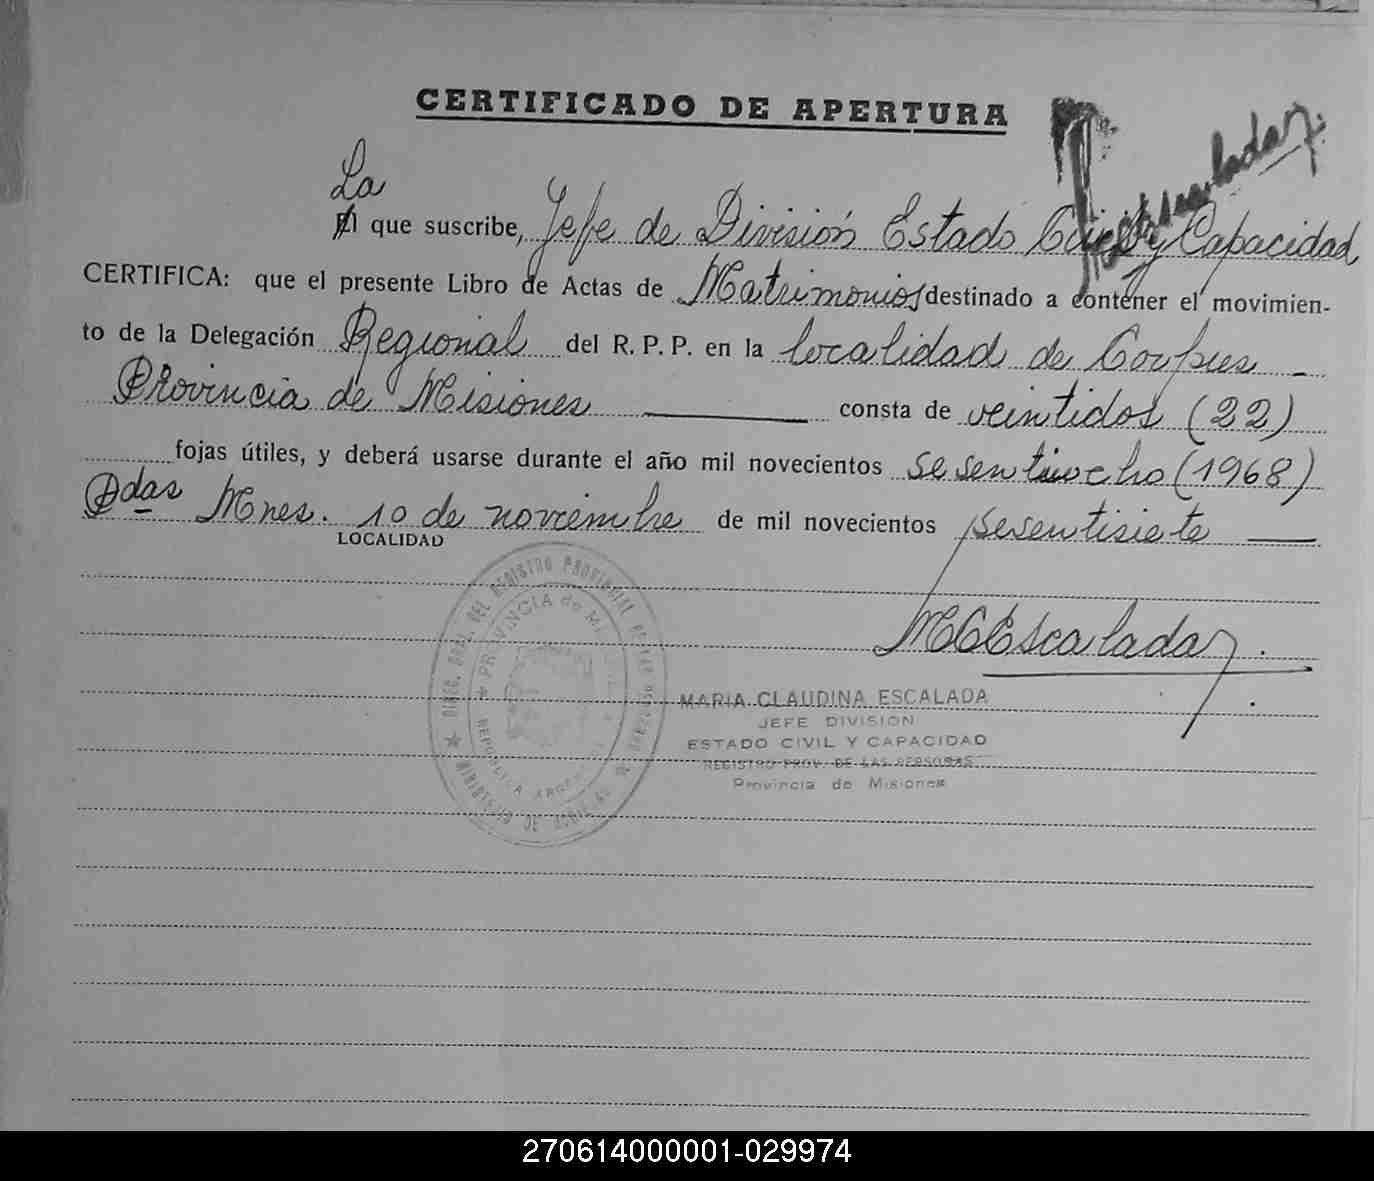 CERTIFICADO DE APERTURA
La
El que suscribe, Jefe de División Estado Civil y Capacidad
CERTIFICA: que el presente Libro de Actas de Matrimonios destinado a contener el movimien-
to de la Delegación Regional del R. P. P. en la localidad de Corpus
Provincia de Misiones consta de veintidos (22)
fojas útiles, y deberá usarse durante el año mil novecientos sesentiocho (1968)
Pdas Mnes. 10 de noviembre de mil novecientos sesentisiete
LOCALIDAD
MCEscalada
DIREC. GRAL. DEL REGISTRO PROVINCIAL DE LAS PERSONAS
PROVINCIA de
REPUBLICA ARGENTINA
MINISTERIO DE
MARIA CLAUDINA ESCALADA
JEFE DIVISION
ESTADO CIVIL Y CAPACIDAD
REGISTRO PROV. DE LAS PERSONAS
Provincia de Misiones
270614000001-029974